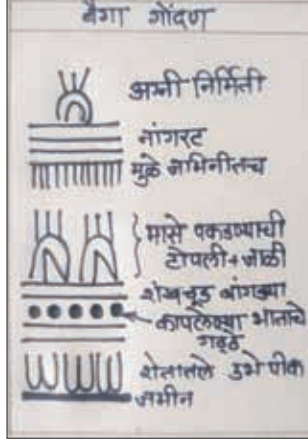 बैगा गोंदण
अग्नी निर्मिती
नांगरट
मुळे जमिनीतच
मासे पकडण्याची
टोपली+जाळी
शंखचूड बांगड्या
कापलेल्या भाताचे
गठ्ठे
शेतातले उभे पीक
जमीन